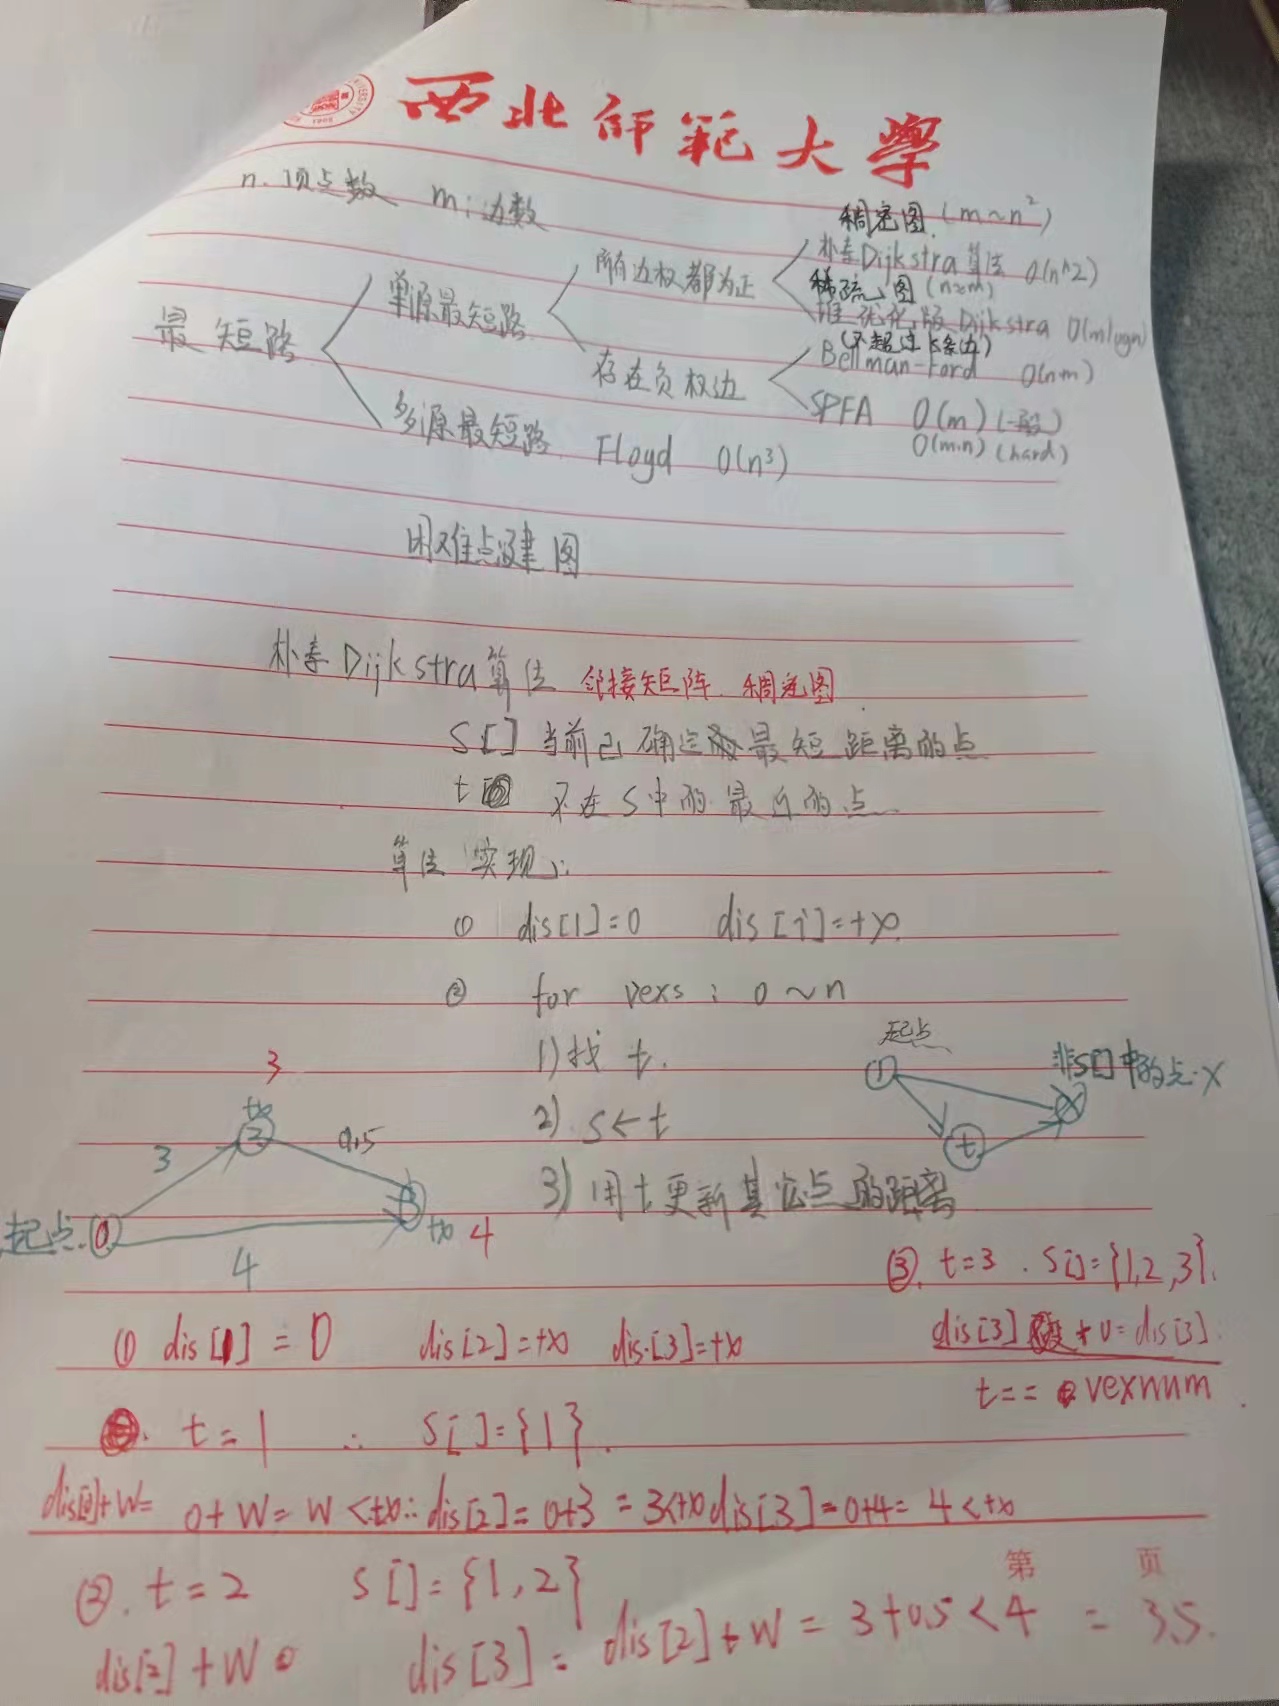 西北师范大学
n:顶点数 m:边数
稠密图(m~n²)
朴素Dijkstra算法 O(n^2)
所有边权都为正
稀疏图(n≈m)
单源最短路
堆优化版Dijkstra O(mlogn)
最短路
(不超过k条边)
Bellman-Ford O(n·m)
存在负权边
SPFA O(m)(一般)
O(m·n)(hard)
多源最短路 Floyd O(n³)
困难点:建图
朴素Dijkstra算法 邻接矩阵 稠密图
S[] 当前已确定最短距离的点
t 不在S中的最近的点
算法实现:
① dis[1]=0 dis[i]=+∞
② for vexs: 0~n
1)找t.
2) S←t
3) 用t更新其它点的距离
起点
① t x
非S[]中的点x
3
+∞
② 3 0.5
起点 1 3 +∞ 4
4
③. t=3. S[]={1,2,3}.
① dis[1]=0 dis[2]=+∞ dis[3]=+∞
dis[3] +0=dis[3].
t==vexnum
t=1 ∴ S[]={1}.
0+W=W<+∞∴dis[2]=0+3=3<+∞ dis[3]=0+4=4<+∞
②. t=2 S[]={1,2}
dis[2]+W dis[3]=dis[2]+W=3+0.5<4 =3.5.
第 页